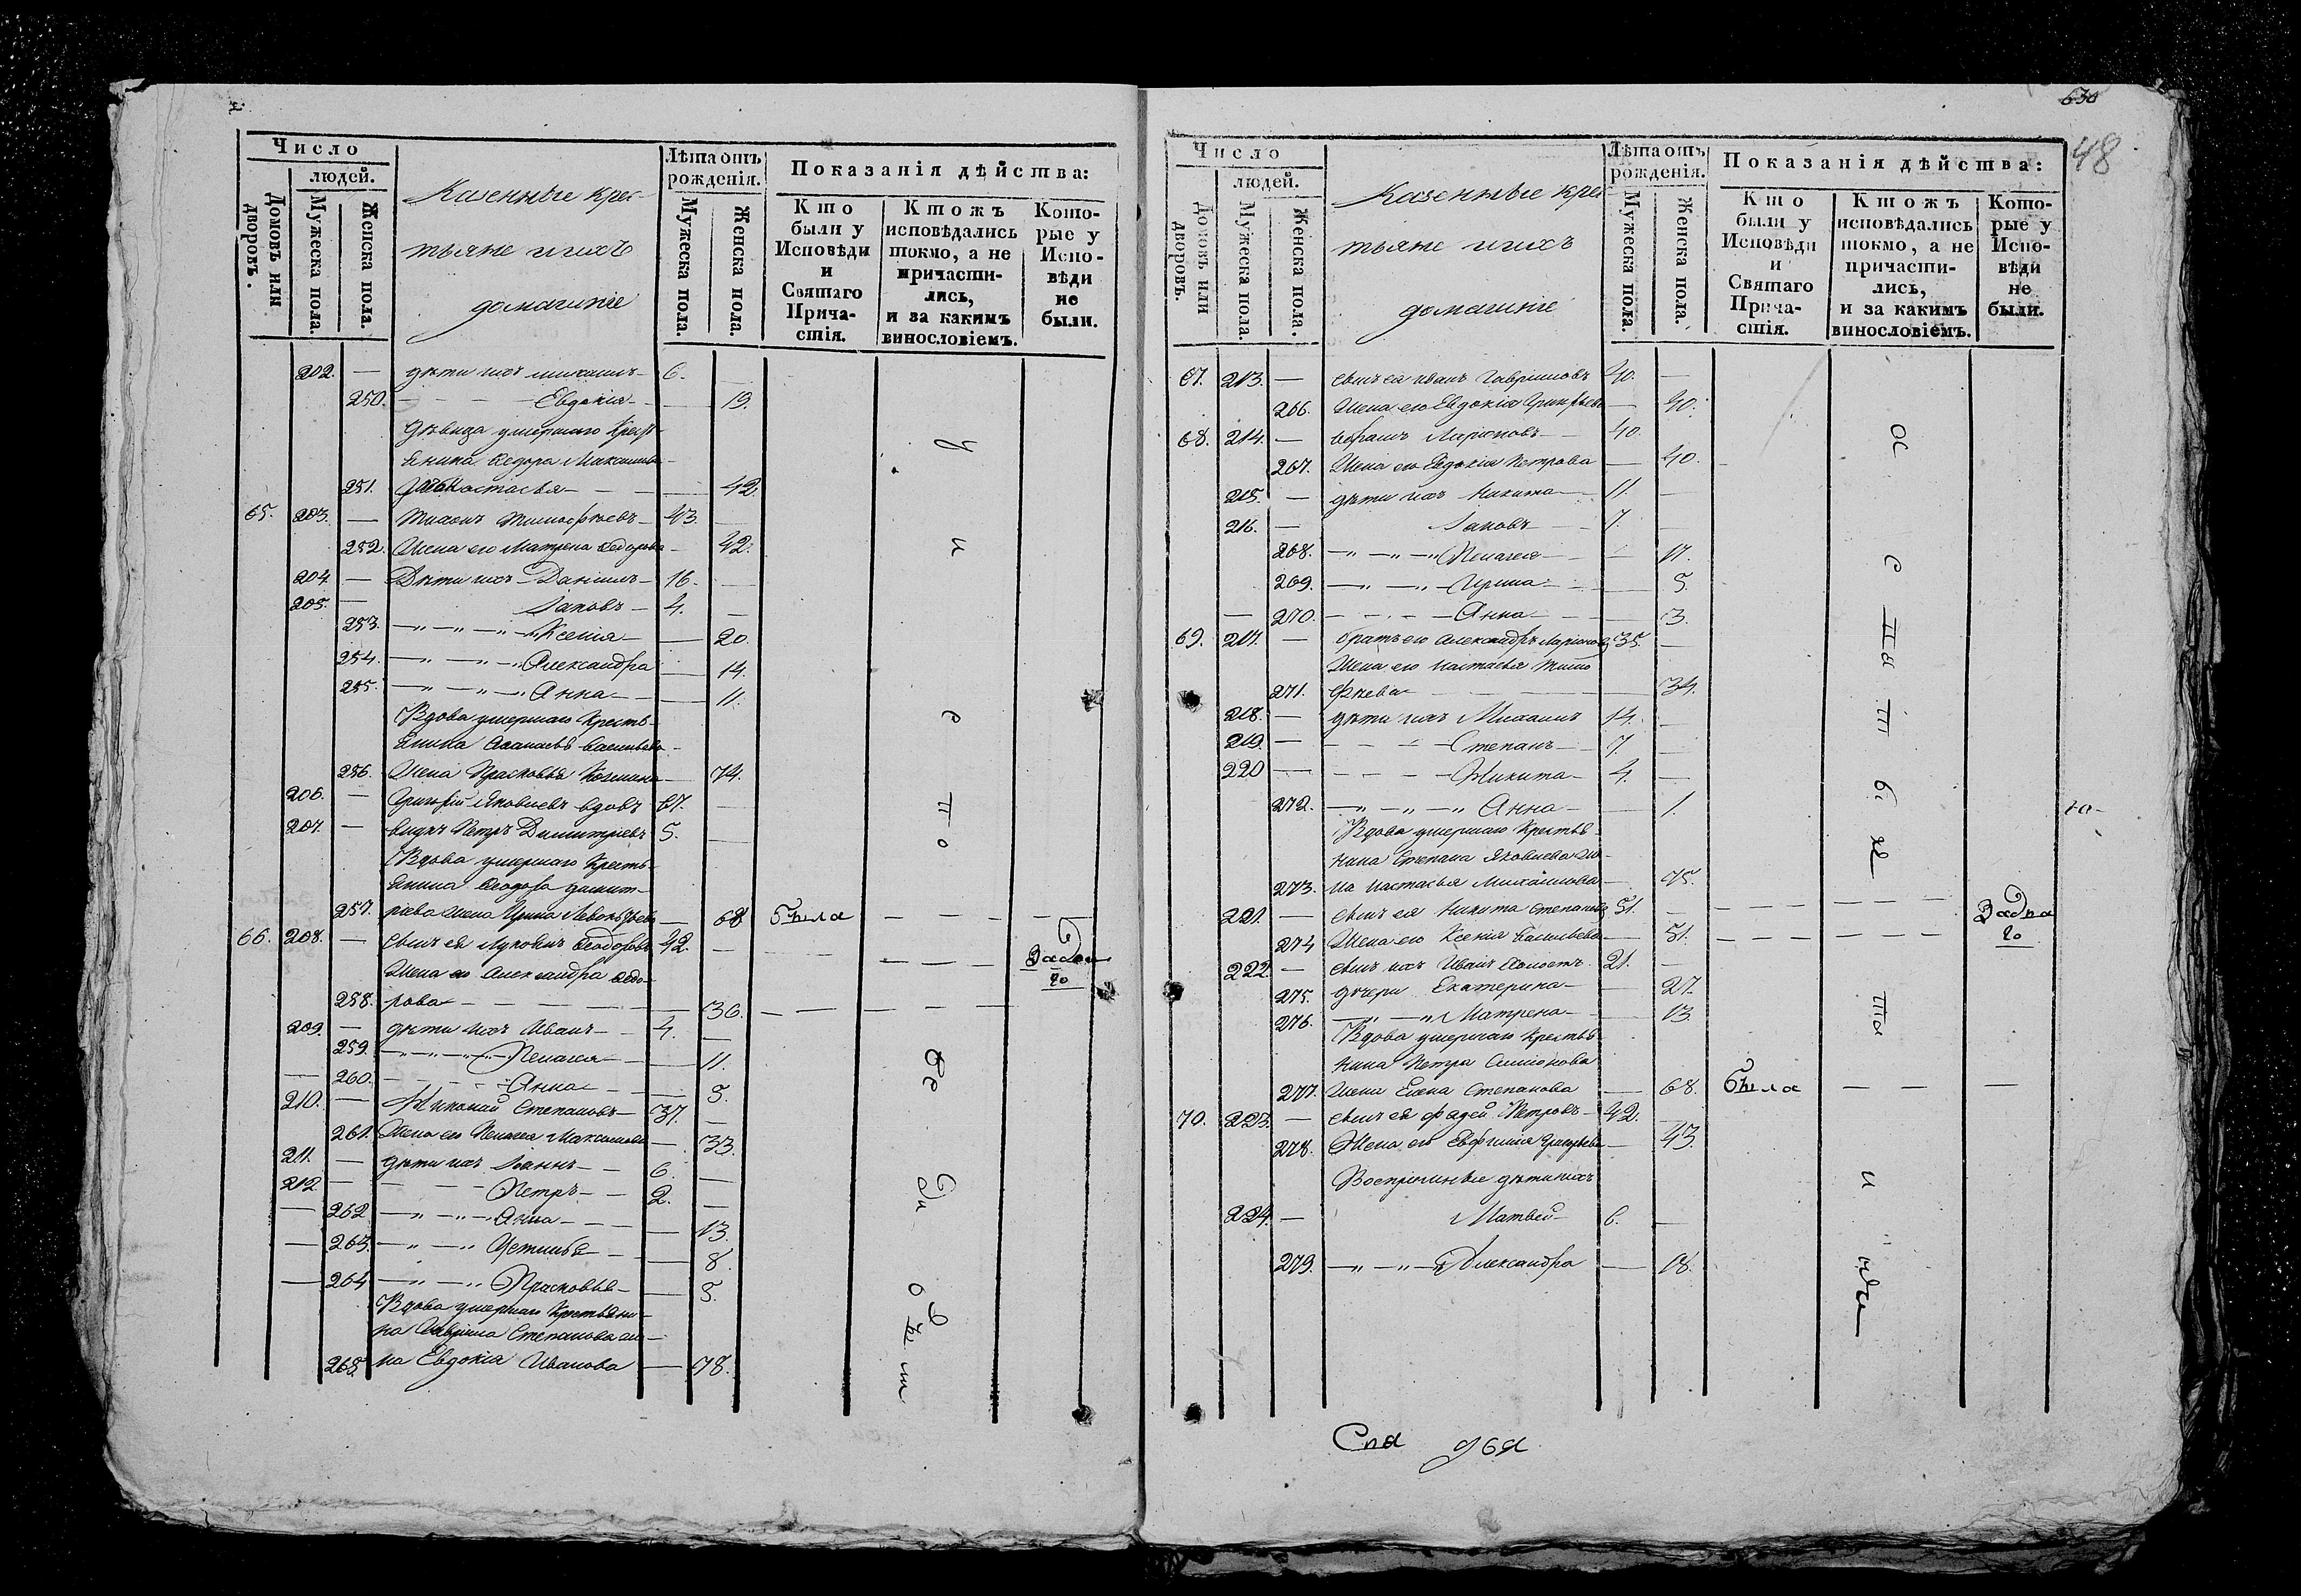 Число
людей.
Домовъ или дворовъ.
Мужеска пола.
Женска пола.
Казенные крес-
тьяне и ихъ
домашніе
Лѣта отъ рожденія.
Мужеска пола.
Женска пола.
Показанія дѣйства:
Кто были у Исповѣди и Святаго Прича-стія.
Ктожъ исповѣдались токмо, а не причасти-лись, и за какимъ винословіемъ.
Кото-рые у Испо-вѣди не были.
202. — дѣти ихъ Михаилъ — 6. —
250. — — — Евдокія — — 19.
Дѣвица умершаго Крест-
янина Ѳедора Максимова
251. Настасья — — — 42.
65. 203. — Тихонъ Тимофѣевъ — 43. —
252. Жена его Матрена Ѳедорова — 42.
204. — Дѣти ихъ — Даніилъ — 16. —
205. — Іаковъ — 4. —
253. —„—„—„ Ксенія — — 20.
254. —„—„—„ Александра — 14.
255. —„—„—„ Анна — — 11.
Вдова умершаго Кресть-
янина Аѳанасья Васильева
256. Жена Прасковья Козмина — 74.
206. — Григорій Яковлевъ вдовъ 67. —
207. — внукъ Петръ Димитріевъ 5. —
Вдова умершаго Кресть-
янина Ѳеодора Димит-
257. ріева жена Ирина Леонтьева — 68 Была — — —
66. 208. — сынъ ея Ѳеодоровъ 42. — — — —
Жена его Александра Ѳедо-
258. рова — — — — 36. — — —
209. — дѣти ихъ Иванъ — 4. —
259. —„—„—„ Пелагея — — 11.
260. — — — Анна — — 5.
210. — Николай Степановъ — 37. —
261. Жена его Пелагея Максимова — 33.
211. — дѣти ихъ Іаннъ — 6. —
212. — — — Петръ — 2. —
262 —„—„— Анна — — 13.
263. —„—„ Устинья — — 8.
264 —„—„ Прасковья — — 5.
Вдова умершаго Крестьяни-
на Гавріила Степанова же-
265. на Евдокія Иванова — 78.
630
48
Число
людей.
Домовъ или дворовъ.
Мужеска пола.
Женска пола.
Казенные крес
тьяне и ихъ
домашніе
Лѣта отъ рожденія.
Мужеска пола.
Женска пола.
Показанія дѣйства:
Кто были у Исповѣди и Святаго Прича-стія.
Ктожъ исповѣдались токмо, а не причасти-лись, и за какимъ винословіемъ.
Кото-рые у Испо-вѣди не были.
67. 213. — сынъ ея Иванъ Гавріиловъ 40. —
266. Жена его Евдокія Григорьева — 40.
68. 214. — Ларіоновъ — 40.
267. Жена его Евдокія Петрова — 40.
215. — дѣти ихъ Никита — 11. —
216. — Іаковъ — 7. —
268. —„—„—„ Пелагея — — 17.
269. —„—„ Ирина — — 5.
270. — — — Анна — — 3.
69. 217. — братъ его Александръ Ларіоновъ 35. —
Жена его Настасья Тимо
271. фѣева — — — 34.
218. — дѣти ихъ Михаилъ 14. —
219. — — — — Степанъ — 7. —
220 — — — — Никита — 4. —
272. —„—„—„ Анна — — 1.
Вдова умершаго Крестья-
нина Степана Яковлева же-
273. на Настасья Михайлова — 75.
221. — сынъ ея Никита Степановъ 51. — — — — —
274 Жена его Ксенія Васильева — 51. — — — —
222. — сынъ ихъ Иванъ холостъ 21. —
275. дочери Екатерина — — 27.
276. —„—„ Матрена — — 13.
Вдова умершаго Крестья
нина Петра Симіонова
277. жена Елена Степанова — 68. Была — — —
70. 223. — сынъ ея Фадей Петровъ — 42. —
278. Жена его Евфимія Григорьева — 43.
Воспріимные дѣти ихъ
224. — Матвей — 6. —
279. —„—„ Александра — 18.